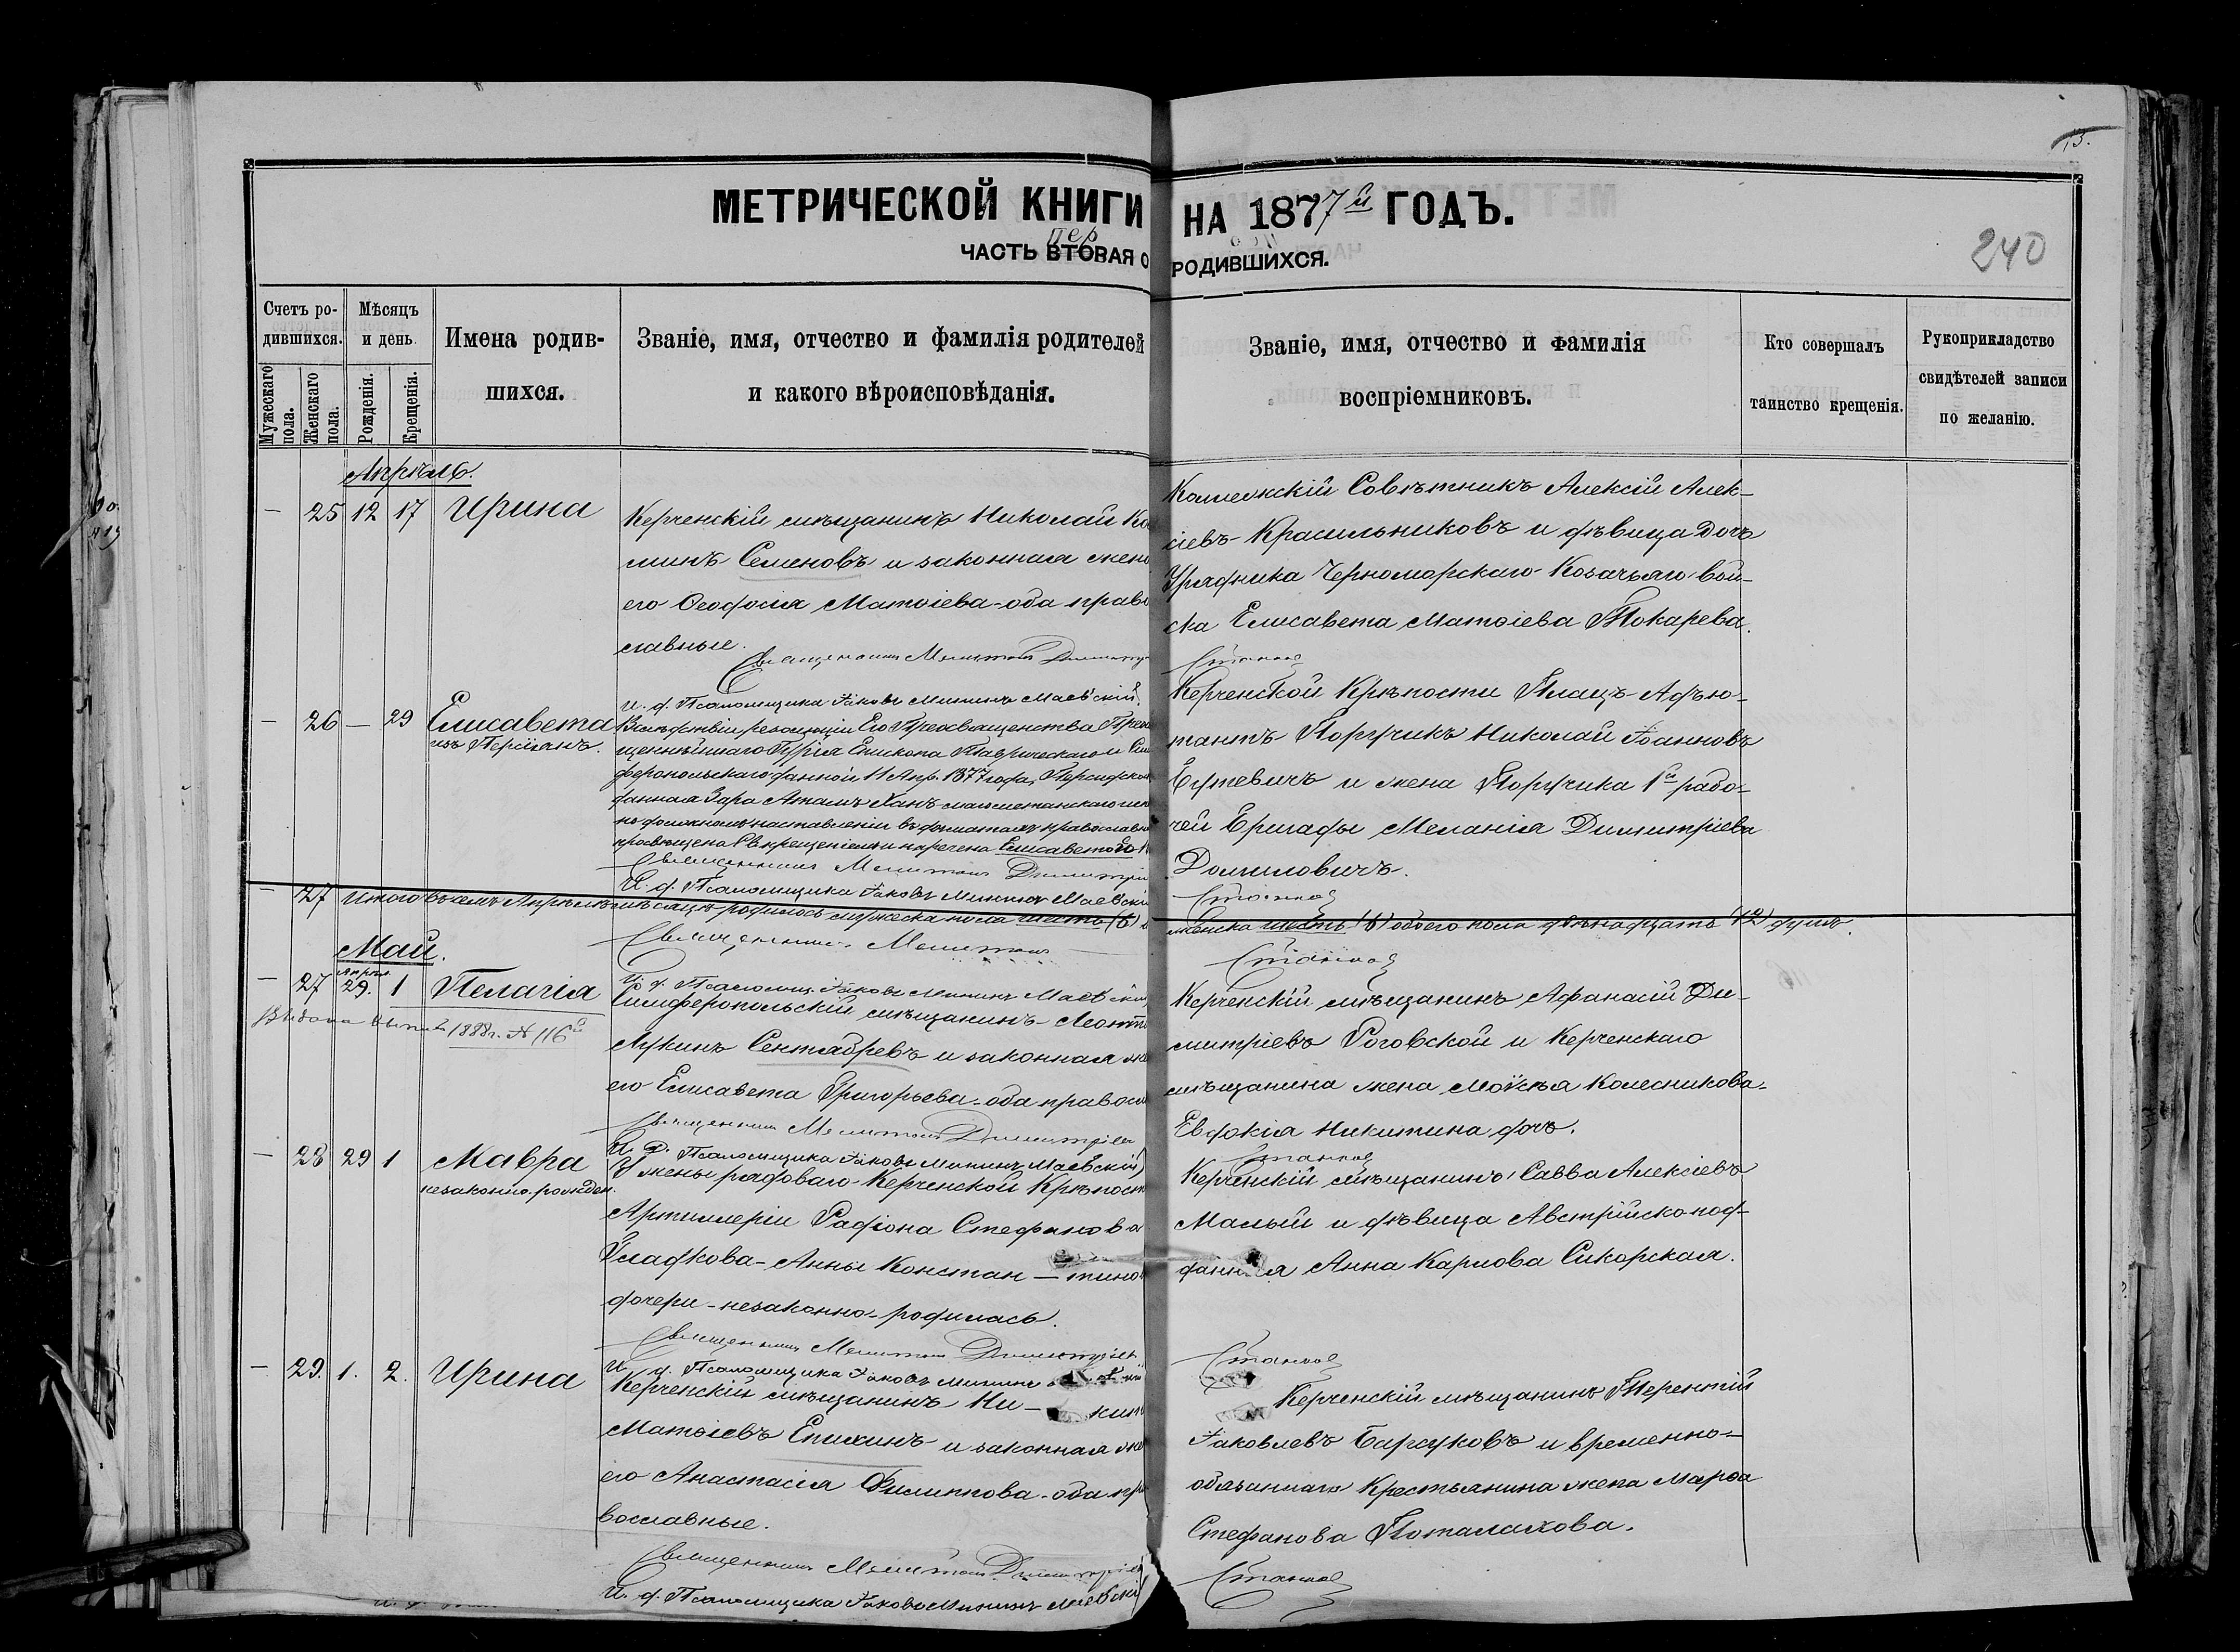 13.
МЕТРИЧЕСКОЙ КНИГИ НА 1877й ГОДЪ.
Пер
ЧАСТЬ ВТОРАЯ О РОДИВШИХСЯ.
240
Счетъ ро-
дившихся.
Мужескаго
пола.
Женскаго
пола.
Мѣсяцъ
и день.
Рожденія.
Крещенія.
Имена родив-
шихся.
Званіе, имя, отчество и фамилія родителей
и какого вѣроисповѣданія.
Званіе, имя, отчество и фамилія
воспріемниковъ.
Кто совершалъ
таинство крещенія.
Рукоприкладство
свидѣтелей записи
по желанію.
Апрѣль.
— 25 12 17 Ирина
Керченскій мѣщанинъ Николай Ко
минъ Семеновъ и законная жена
его Ѳеодосія Матѳіева - оба право
славные.
Священникъ Мелитонъ
И. д. Псаломщика Іаковъ Мининъ Маевскій.
Коллежскій Совѣтникъ Алексій Алек-
сіевъ Красильниковъ и дѣвица дочь
Урядника Черноморскаго Козачьяго Вой-
ска Елисавета Матѳіева Токарева.
— 26 — 29 Елисавета
изъ Персіянъ.
Вслѣдствіи резолюціи Его Преосвященства Преос
щеннѣйшаго Гурія Епископа Таврическаго и Сим
феропольскаго данной 11 Апр. 1877 года, Персидско
данная Зара Аталъ Ханъ магометанскаго
по должномъ наставленіи въ догматахъ православн
просвѣщена Св. крещеніемъ и наречена Елисаветою
Священникъ Мелитонъ
И. д. Псаломщика Іаковъ Мининъ Маевскій
Керченской Крѣпости Плацъ-Адъю-
тантъ Поручикъ Николай Іоанновъ
Бутевичъ и жена Поручика 1й рабо-
чей Бригады Меланія Димитріева
Домиловичъ.
— 27 Итого въ семъ Апрѣлѣ мѣсяцѣ родилось мужеска пола шесть (6)
женска шесть (6) обоего пола двѣнадцать (12) душъ.
Священникъ Мелитонъ
И. д. Псаломщ. Іаковъ Мининъ Маевскій
Май.
Апрѣл.
— 27 29. 1 Пелагія
1888г. № 116й
Симферопольскій мѣщанинъ - Леонт
Лукинъ Сентябревъ и законная же
его Елисавета Григорьева - оба правосл
Священникъ Мелитонъ
И. д. Псаломщика Іаковъ Мининъ Маевскій
Керченскій мѣщанинъ Афанасій Ди-
митріевъ Роговской и Керченскаго
мѣщанина жена Моѵсея Колесникова-
Евдокія Никитина дочь.
— 28 29 1 Мавра
незаконно-рожден.
У жены рядоваго Керченской Крѣпост
Артиллеріи Радіона Стефанова
Гладкова - Анны Констан — тино
дочери - незаконно-родилась.
Священникъ Мелитонъ
И. д. Псаломщика Іаковъ Мининъ
Керченскій мѣщанинъ Савва Алексіевъ
Малый и дѣвица Австрійскопод-
данная Анна Карлова Сикорская.
— 29. 1. 2. Ирина
Керченскій мѣщанинъ Ни — кит
Матѳіевъ Епихинъ и законная же
его Анастасія Филиппова - оба пра
вославные.
Священникъ Мелитонъ
И. д. Псаломщика Іаковъ Мининъ Маевскій
Керченскій мѣщанинъ Терентій
Іаковлевъ Барсуковъ и временно-
обязаннаго Крестьянина жена Марѳа
Стефанова Поталахова.